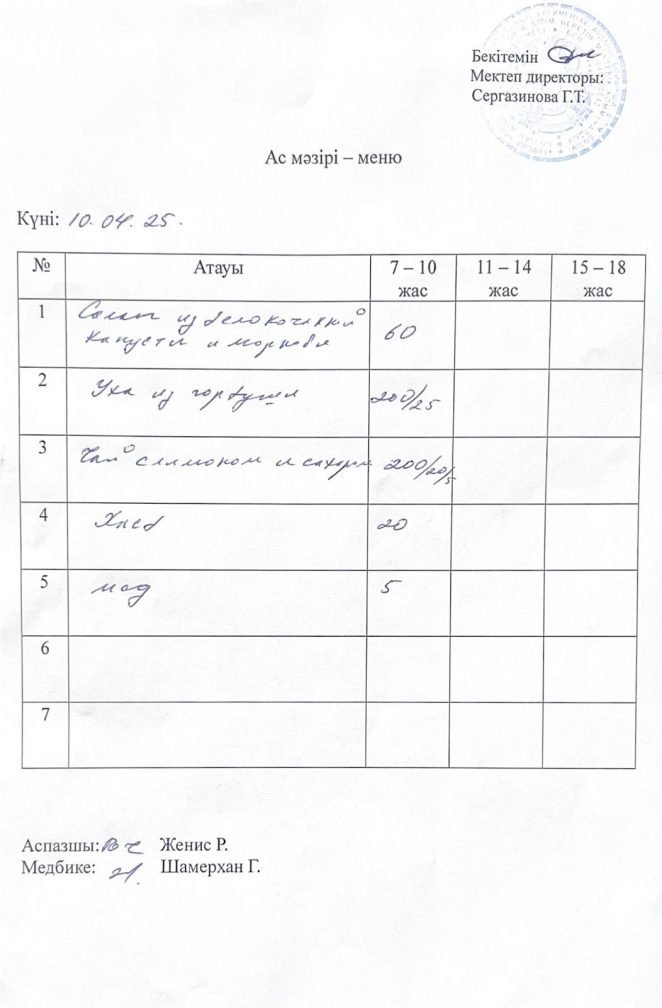 Бекітемін
Мектеп директоры:
Сергазинова Г.Т.
Ас мәзірі – меню
Күні: 10.04.25.
№ Атауы 7 – 10 жас 11 – 14 жас 15 – 18 жас
1 Салат из белокочанной
капусты и моркови 60
2 Уха из горбуши 200/25
3 Чай с лимоном и сахаром 200/20/5
4 Хлеб 20
5 мёд 5
6
7
Аспазшы: Женис Р.
Медбике: Шамерхан Г.